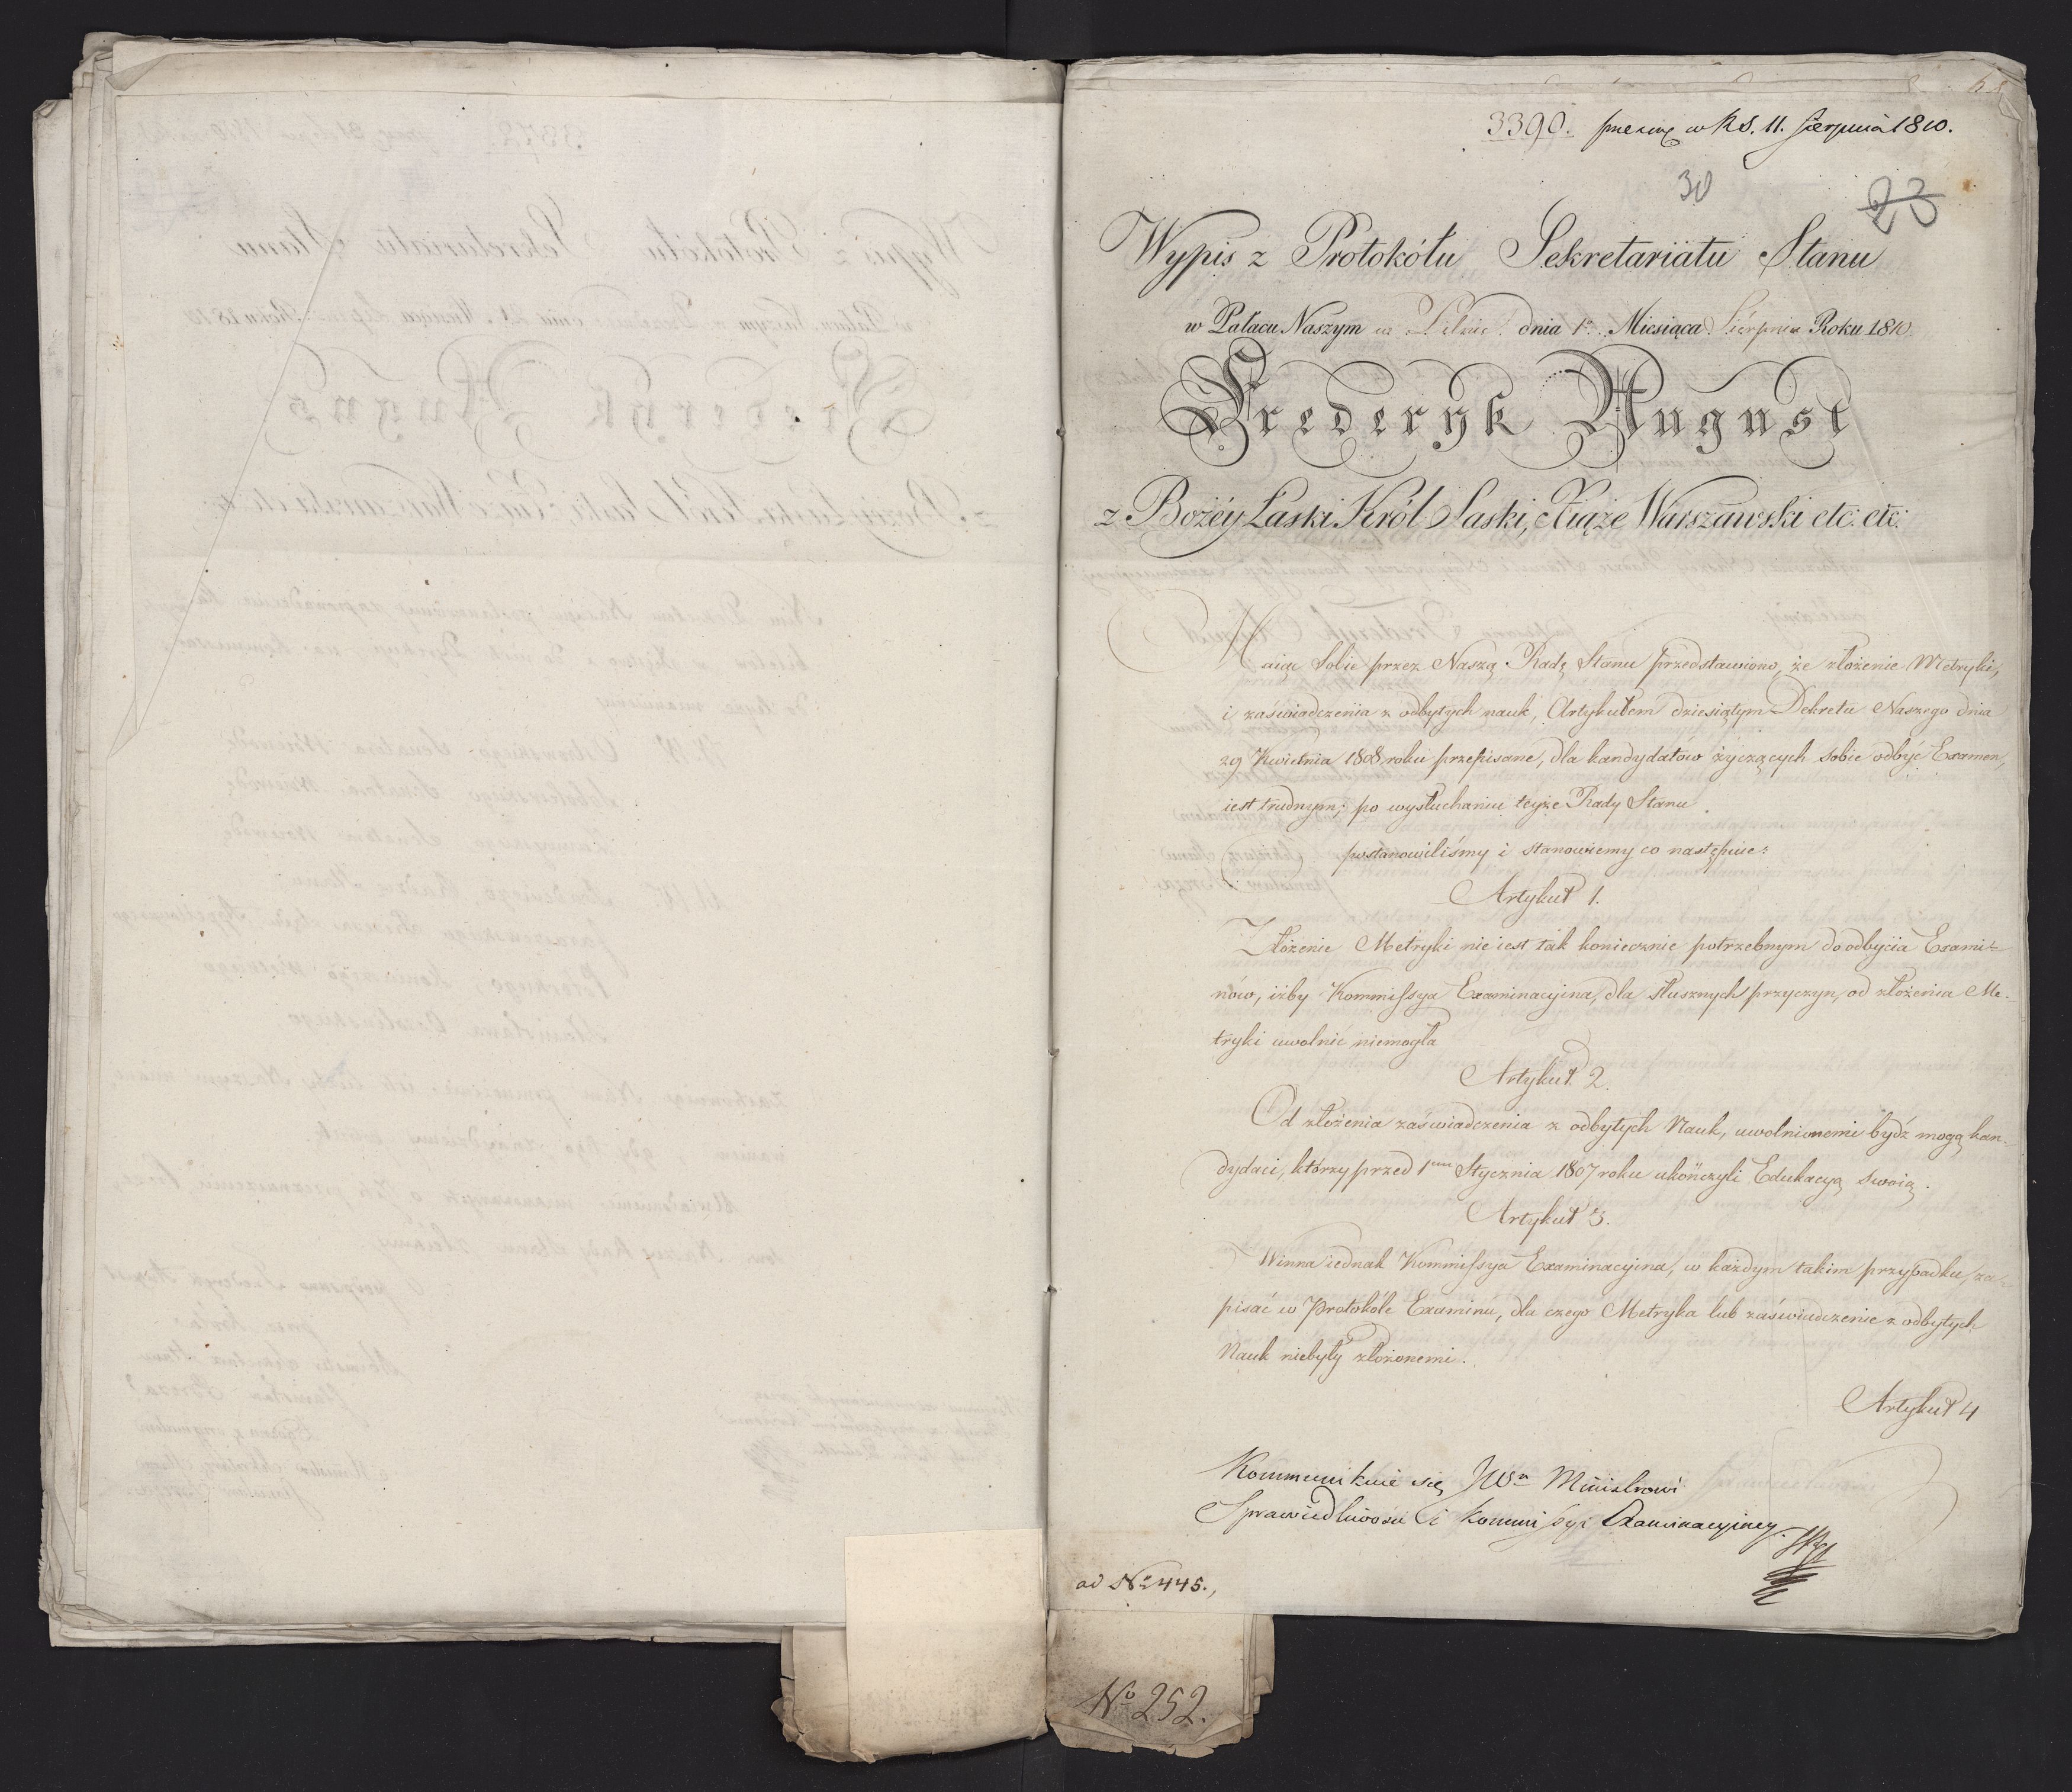 3390. w RS. 11. Sierpnia 1810.
30
23
Wypis z Protokółu Sekretariatu Stanu
w Pałacu Naszym w dnia 1o. Miesiąca Sierpnia Roku 1810.
Frederyk August
z Bożéy Łaski Król Saski, Xiąże Warszawski etc: etc:
Maiąc Sobie przez Naszą Radę Stanu przedstawiono, że złożenie Metryki,
i zaświadczenia z odbytych nauk, Artykułem dziesiątym Dekretu Naszego dnia
29 Kwietnia 1808 roku przepisane, dla kandydatów życzących sobie odbyć Examen,
iest trudnym; po wysłuchaniu teyże Rady Stanu.
postanowiliśmy i stanowiemy co następuie:
Artykuł 1.
Złożenie Metryki nie iest tak koniecznie potrzebnym do odbycia Exami-
nów, iżby Kommissya Examinacyina, dla słusznych przyczyn, od złożenia Me-
tryki uwolnić niemogła
Artykuł 2.
Od złożenia zaświadczenia z odbytych Nauk, uwolnionemi bydź mogą kan-
dydaci, którzy przed 1ym Stycznia 1807 roku ukończyli Edukacyą swoią.
Artykuł 3.
Winna iednak Kommissya Examinacyina, w każdym takim przypadku, za-
pisać w Protokóle Examinu, dla czego Metryka lub zaświadczenie z odbytych
Nauk niebyły złożonemi.
Artykuł 4
Kommunikuie się JWu Ministrowi
Sprawiedliwości i Kommissyi Examinacyiney.
ad No 445.,
No 252.